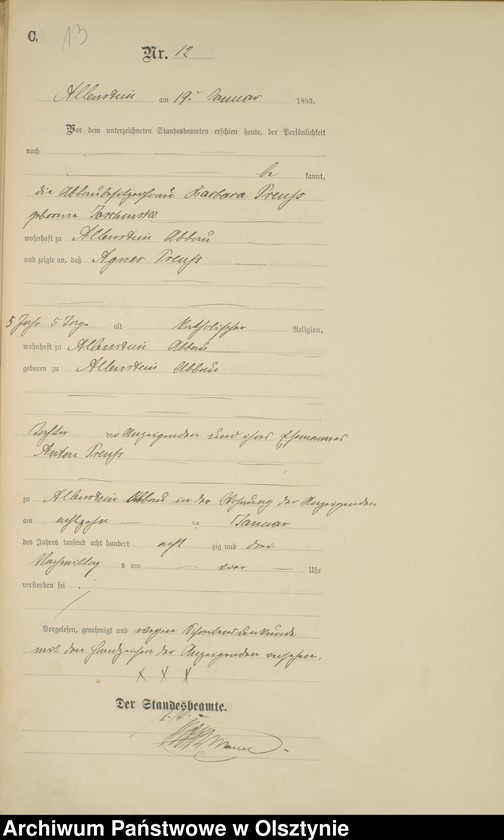 C. 13
Nr. 12
Allenstein am 19. Januar 1883.
Vor dem unterzeichneten Standesbeamten erschien heute, der Persönlichkeit
nach
be kannt,
die Abbaubesitzerfrau Barbara Preuß
geborene
wohnhaft zu Allenstein Abbau
und zeigte an, daß Agnes Preuß
5 Jahr 5 Tage alt katholischer Religion,
wohnhaft zu Allenstein Abbau
geboren zu Allenstein Abbau
Tochter der Anzeigenden und ihres Ehemannes
Anton Preuß
zu Allenstein Abbau in der Wohnung der Anzeigenden
am achtzehn ten Januar
des Jahres tausend acht hundert acht zig und drei
Nachmittag s um Uhr
verstorben sei
Vorgelesen, genehmigt und wegen Schreibensunkunde
mit den Handzeichen der Anzeigenden versehen.
X X X
Der Standesbeamte.
Archiwum Państwowe w Olsztynie